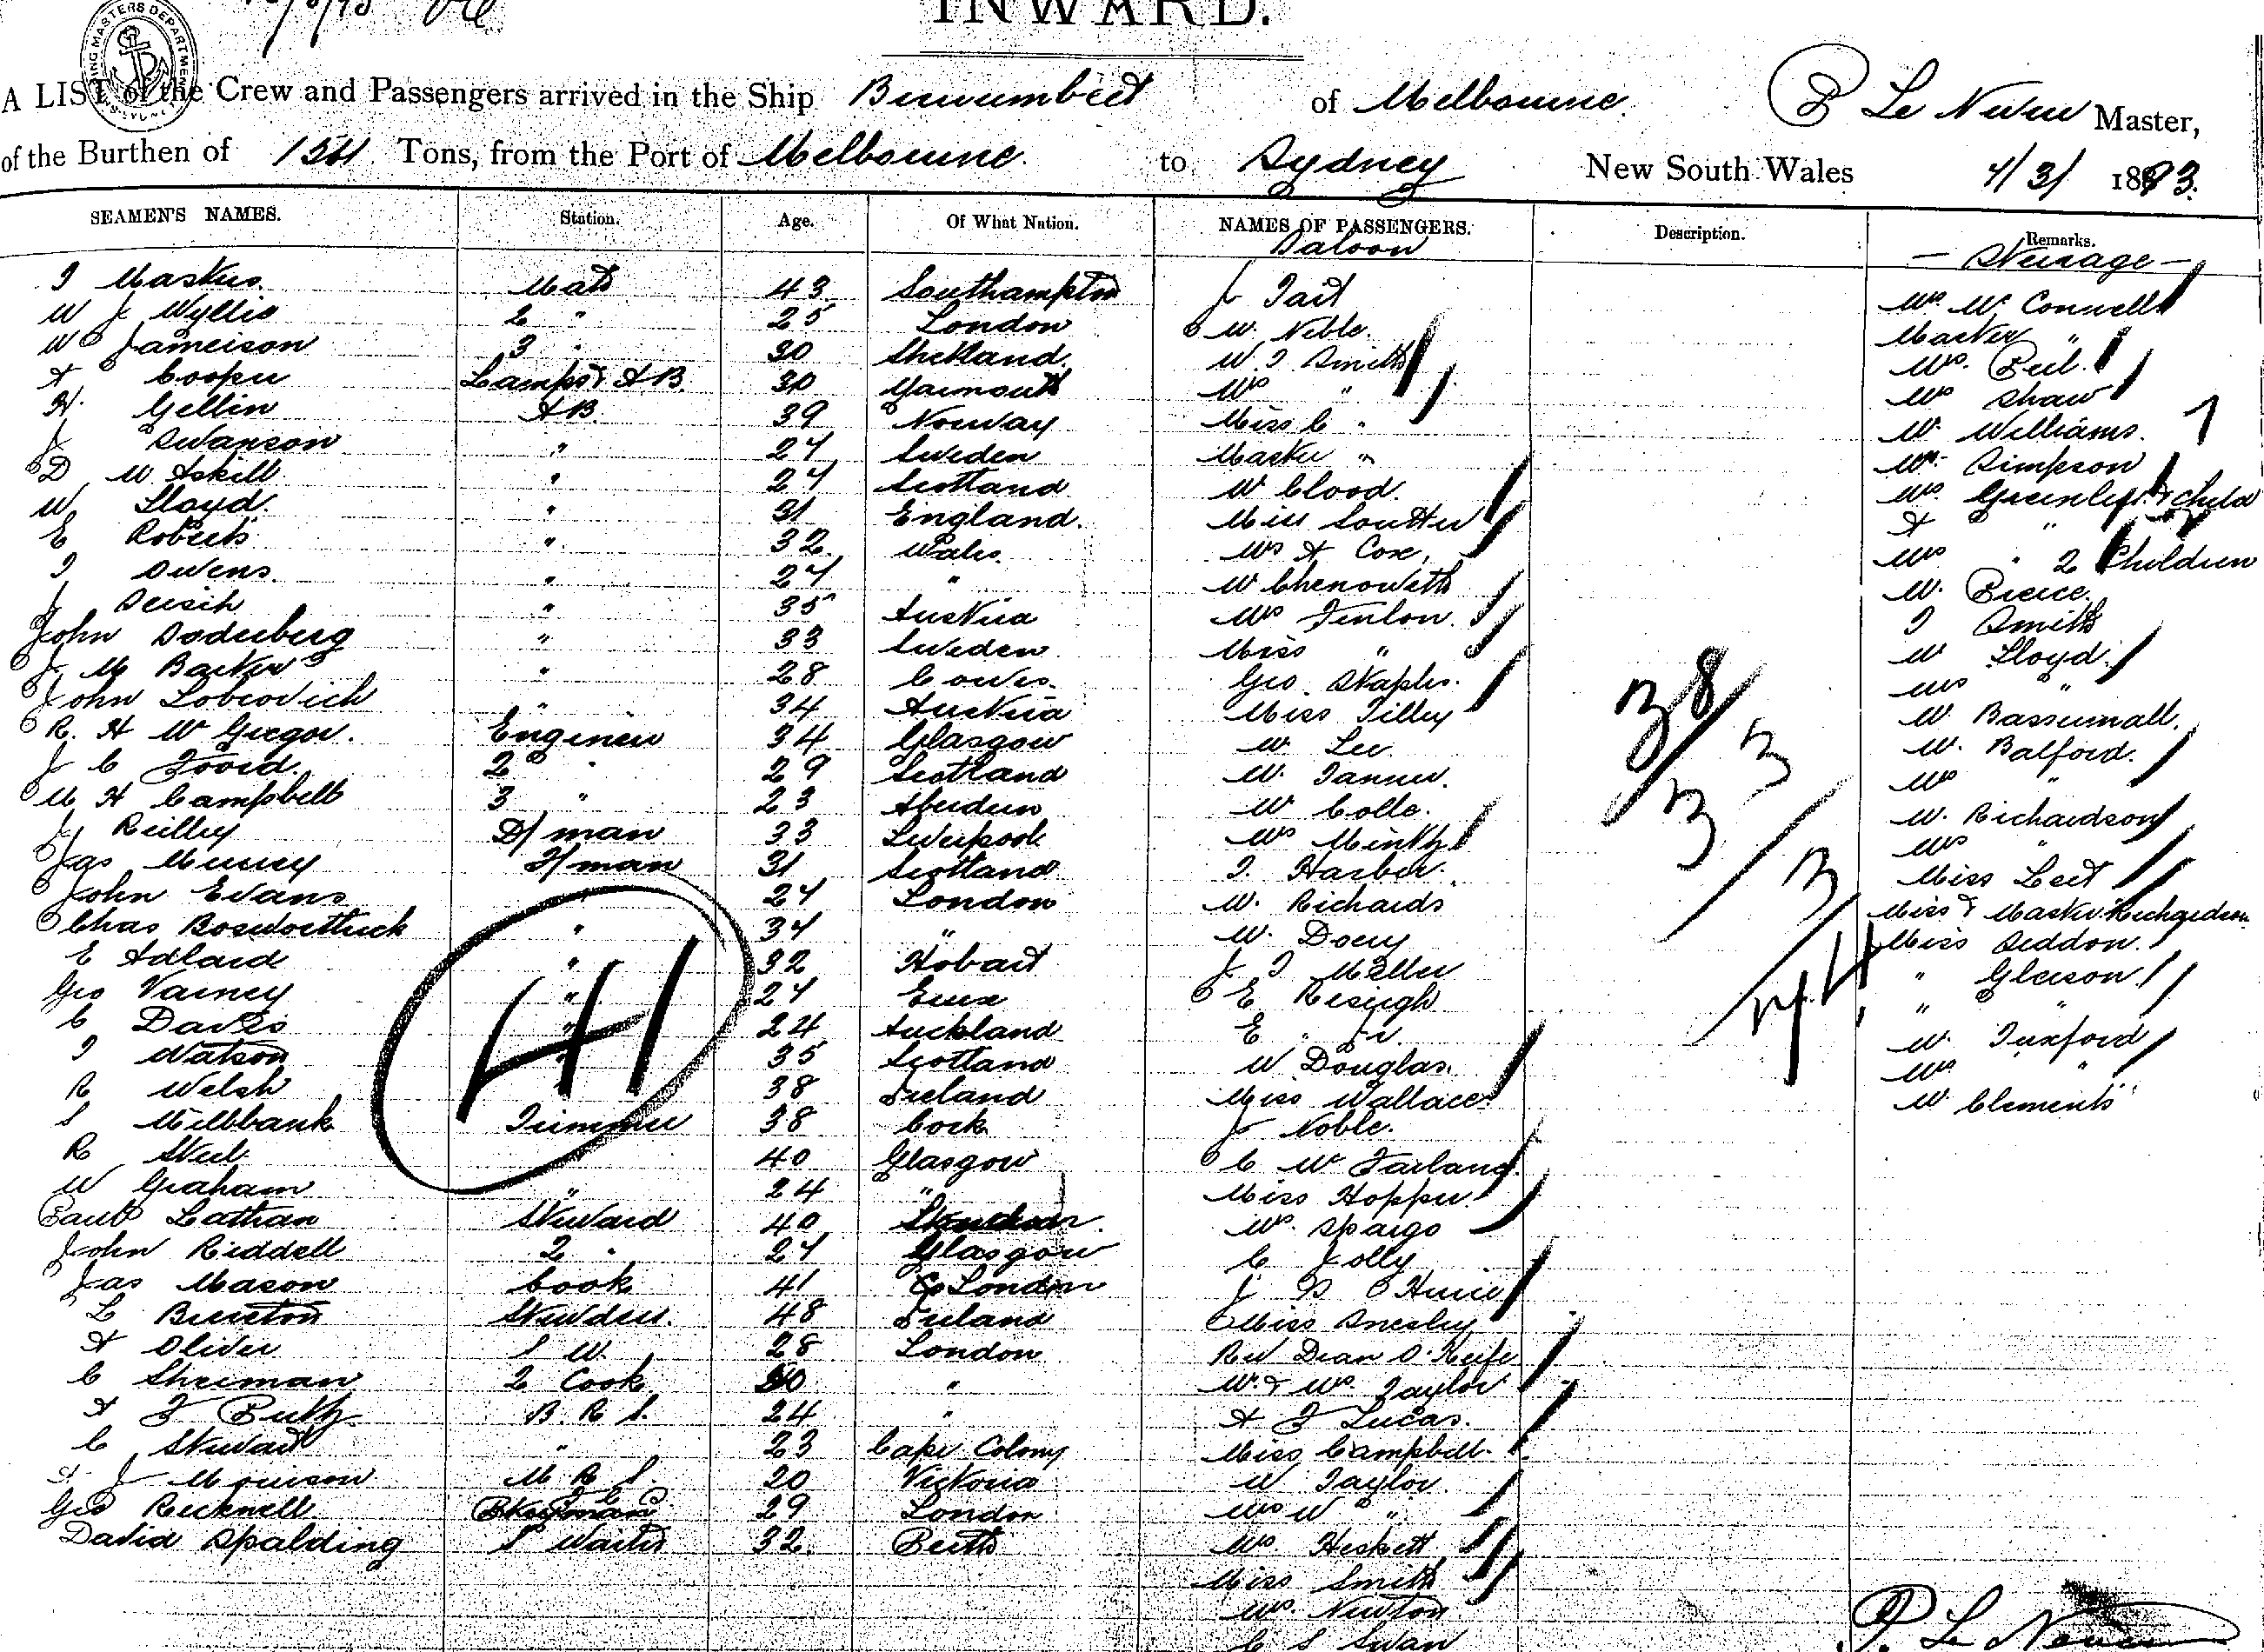 INWARD.
A LIST of the Crew and Passengers arrived in the Ship Burrumbeet of Melbourne. P Le Neveu Master,
of the Burthen of Tons, from the Port of Melbourne to Sydney New South Wales 4/3/ 1893.
SEAMEN'S NAMES. Station. Age. Of What Nation. NAMES OF PASSENGERS. Description. Remarks.
Saloon — Steerage —
Mate 43 Southampton J Tait
W J Wyllie 2 " 25 London W. Noble. Mrs McConnell
W Jameison 3 " 30 Shetland. W. T Smith Master "
A Cooper Lamps & AB. 30 Yarmouth Mrs " Mrs. Peel.
H. Gellin AB. 39 Norway Miss C " Mrs Shaw
J Swanson " 27 Sweden Master " W. Williams.
D McAskill " 27 Scotland Simpson
W. Lloyd. " 31 England. Miss & child
E Roberts " 32 Wales. Mrs A Cox. A "
T Owens. " 27 " Mr Chenoweth Mrs " 2 Children
J " 35 Austria Mrs Finlon. W. Pierce.
John Soderberg " 33 Sweden Miss " T Smith
J. M Barker " 28 Cowes Geo. Staples. W Lloyd.
John Lobrovich " 34 Austria Miss Tilley Mrs "
R. H McGregor. Engineer 34 Glasgow Mr Lee
J C Foord. 2 " 29 Scotland W. Tanner. W. Balford.
M H Campbell 3 " 23 Aberdeen Mr Colle. Mrs "
J Reilley D/man 33 Liverpool Mrs W. Richardson
Jas Murray F/man 31 Scotland T. Harber. Mrs "
John Evans " 27 London W. Richards Miss
Chas " 34 " W. Docry Miss & Master Richardson
E Adlard " 32 Hobart J T Miller Miss Seddon.
Geo Varney " 27 Essex E " Gleeson
C Davies " 24 Auckland E " Jr. " "
T Watson 35 Scotland W Douglas. W. Tuxford
R Welsh 38 Ireland Miss Wallace Mrs "
S Millbank Trimmer 38 Cork J Noble. W. Clements
R Steel 40 Glasgow C McFarland.
W Graham " 24 " Miss Hopper
Paul Lathan Steward 40 Mrs. Spargo
John Riddell 2 " 27 Glasgow C Jolly
Jas Mason Cook 41 London J
L Brereton Stewdess. 48 Ireland Miss
A Oliver S W. 28 London Rev Dean O'Keefe
C Shreiman 2 Cook " Mr. & Mrs. Taylor
A F B. R S. 24 " A F Lucas.
C Steward " 23 Cape Colony Miss Campbell
A J Morrison M R S. 20 Victoria W Taylor.
Geo Recknell 29 London Mrs W "
David Spalding S Waiter 32. Perth Mrs. Heskett
Miss Smith
Mrs. Newton
C S Swan
38
3
3
3
41
P. Le Neveu